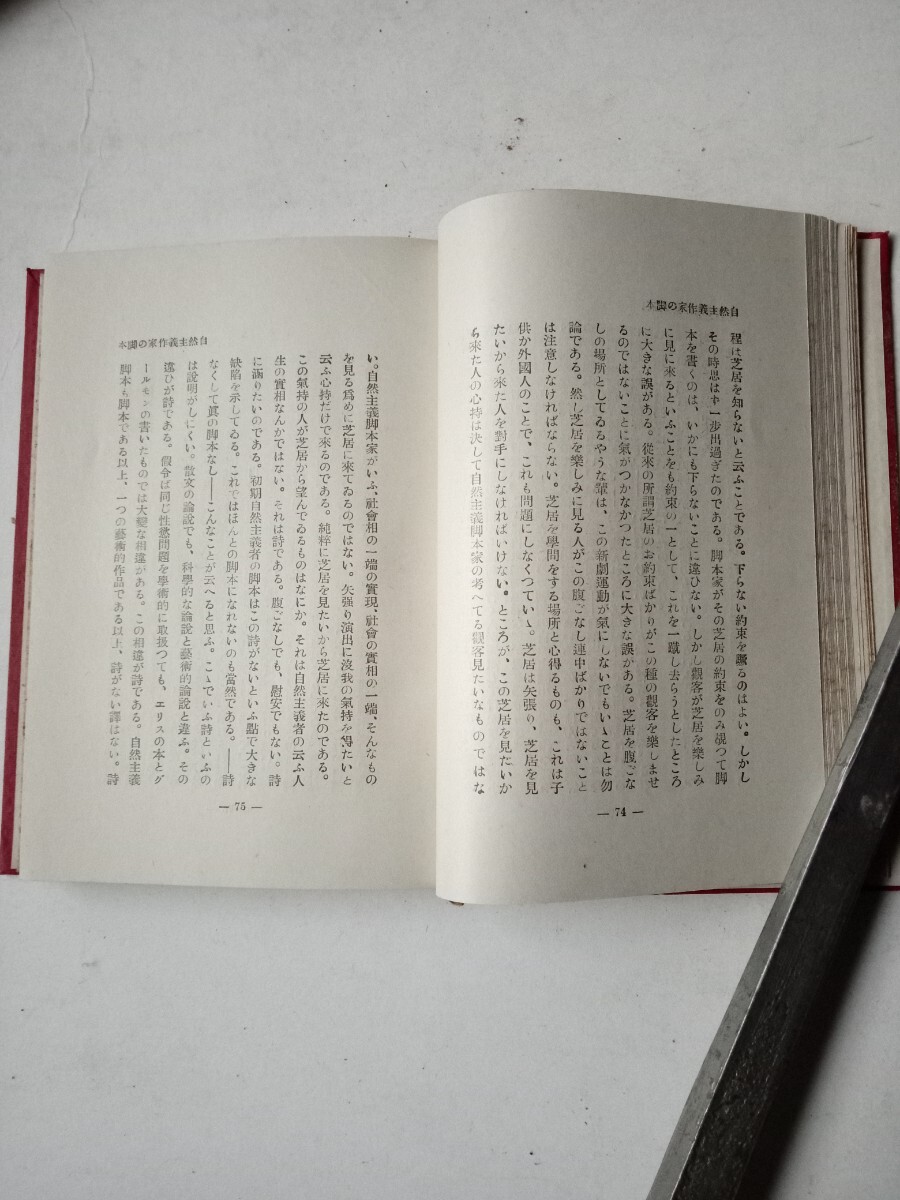 自然主義作家の脚本
程は芝居を知らないと云ふことである。下らない約束を蹶るのはよい。しかし
その時思はず一歩出過ぎたのである。脚本家がその芝居の約束をのみ覘つて脚
本を書くのは、いかにも下らないことに違ひない。しかし觀客が芝居を樂しみ
に見に來るといふことをも約束の一として、これを一蹴し去らうとしたところ
に大きな誤がある。從來の所謂芝居のお約束ばかりがこの種の觀客を樂しませ
るのではないことに氣がつかなかつたところに大きな誤がある。芝居を腹ごな
しの場所としてゐるやうな輩は、この新劇運動が氣にしないでもいゝことは勿
論である。然し芝居を樂しみに見る人がこの腹ごなし連中ばかりではないこと
は注意しなければならない。芝居を學問をする場所と心得るものも、これは子
供か外國人のことで、これも問題にしなくつていゝ。芝居は矢張り、芝居を見
たいから來た人を對手にしなければいけない。ところが、この芝居を見たいか
ら來た人の心持は決して自然主義脚本家の考へてる觀客見たいなものではな
— 74 —
自然主義作家の脚本
い。自然主義脚本家がいふ、社會相の一端の實現、社會の實相の一端、そんなもの
を見る爲めに芝居に來てゐるのではない。矢張り演出に沒我の氣持を得たいと
云ふ心持だけで來るのである。純粹に芝居を見たいから芝居に來たのである。
この氣持の人が芝居から望んでゐるものはなにか。それは自然主義者の云ふ人
生の實相なんかではない。それは詩である。腹ごなしでも、慰安でもない。詩
に涵りたいのである。初期自然主義者の脚本はこの詩がないといふ點で大きな
缺陷を示してゐる。これではほんとの脚本になれないのも當然である。——詩
なくして眞の脚本なし——こんなことが云へると思ふ。こゝでいふ詩といふの
は說明がしにくい。散文の論說でも、科學的な論說と藝術的論說と違ふ。その
違ひが詩である。假令ば同じ性慾問題を學術的に取扱つても、エリスの本とグ
ールモンの書いたものでは大變な相違がある。この相違が詩である。自然主義
脚本も脚本である以上、一つの藝術的作品である以上、詩がない譯はない。詩
— 75 —